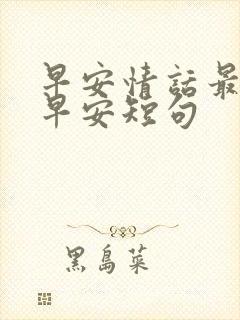 早安情話最
早安短句
黑島菜